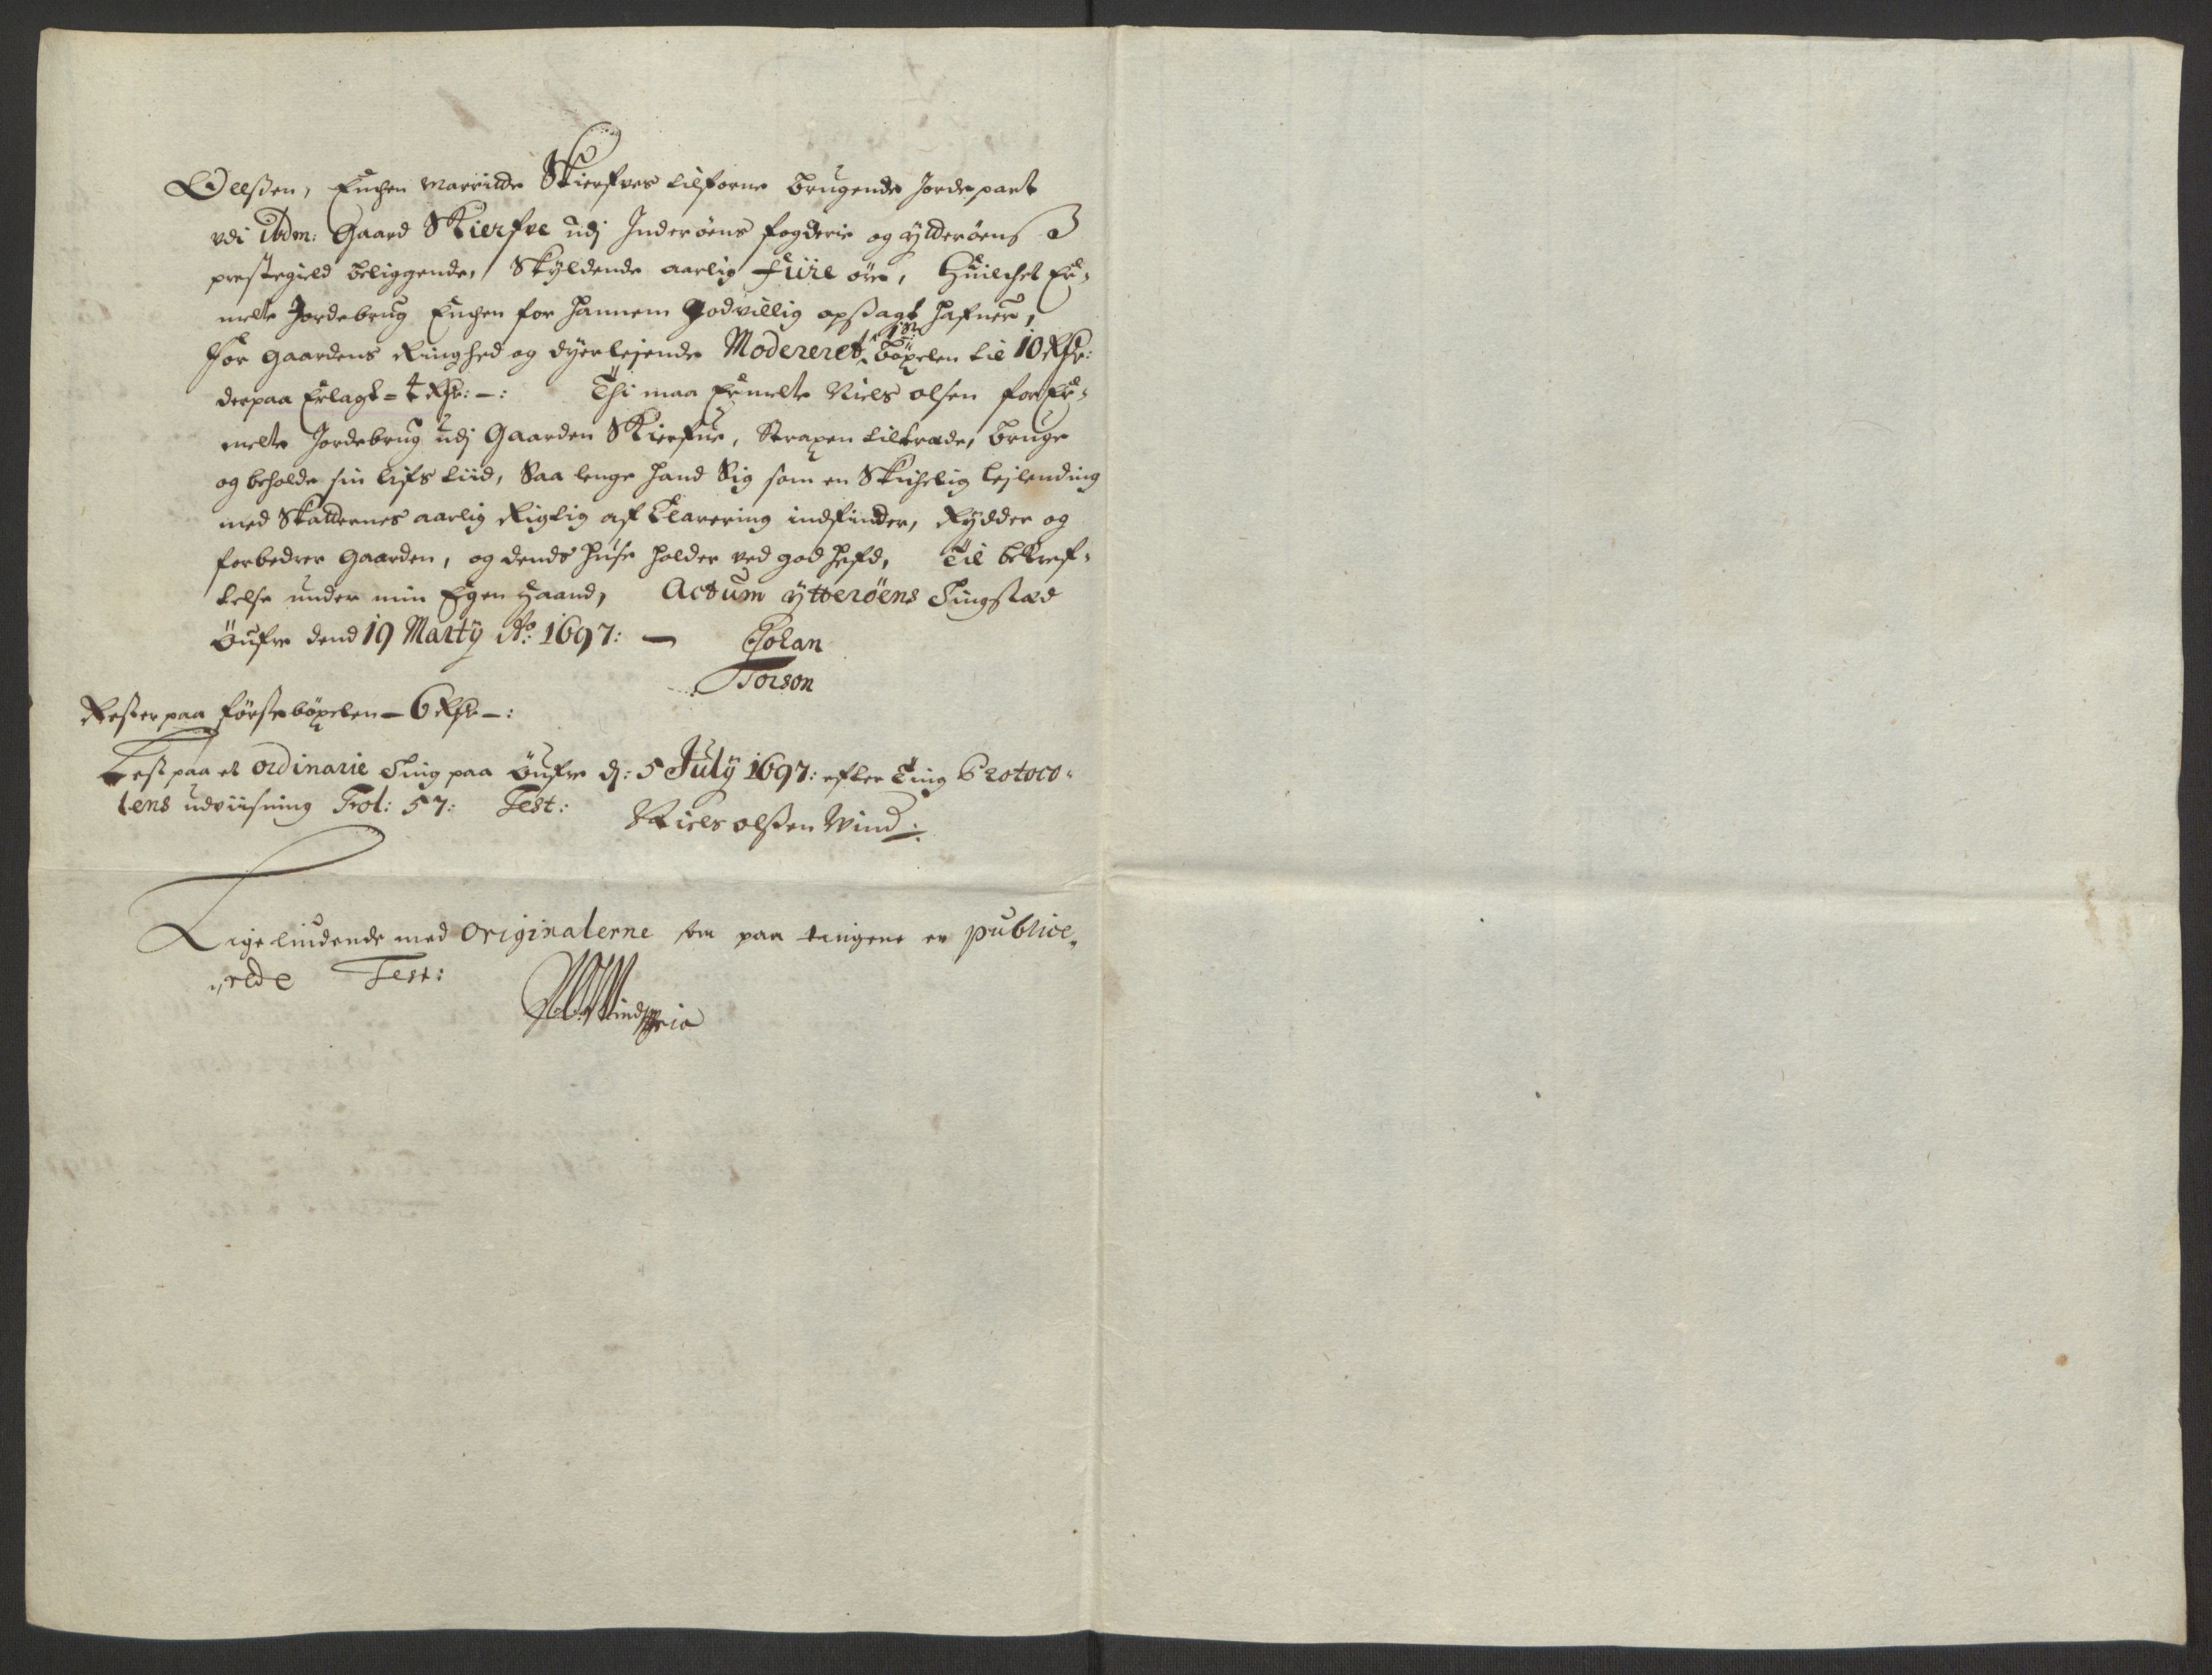 Olssen, Enchen Marritte Skierfves tilforne brugende Jordepart
udi ibdm: Gaard Skierfve udj Inderöens fogderie og ytteröens
prestegield beliggende, Skyldende aarlig fiire öre, Huilchet be-
melte Jordebrug Enchen for hannem godvillig opsagt hafuer,
For gaardens Ringhed og dyrlejende Modereret 1ste böxelen til 10 Rdr:
derpaa Erlagt = 4 Rdr: -: Thi maa bemelte Niels olsen for be-
melte Jordebrug udj Gaarden Skierfue, Straxen tiltræde, bruge
og beholde sin lifs tiid, Saa lenge hand Sig som en Skichelig lejlending
med Skatternes aarlig Rigtig af Clarering indfinder, Rydder og
forbedrer gaarden, og dends huse holder ved god hefd, Til bekref-
telse under min Egen Haand, Actum ytteröens Tingstæd
Öufre dend 19 Martÿ Ao: 1697: —
Johan
Torson
Rester paa förste böxelen - 6 Rdr -:
Lest paa et ordinarie Ting paa Öufre dj: 5 Julÿ 1697: efter Ting Protoco-
lens udviisning Fol: 57: Test: Niels olssen Wind:
Ligeliudende med originalerne som paa tingene er publice-
rede Test: